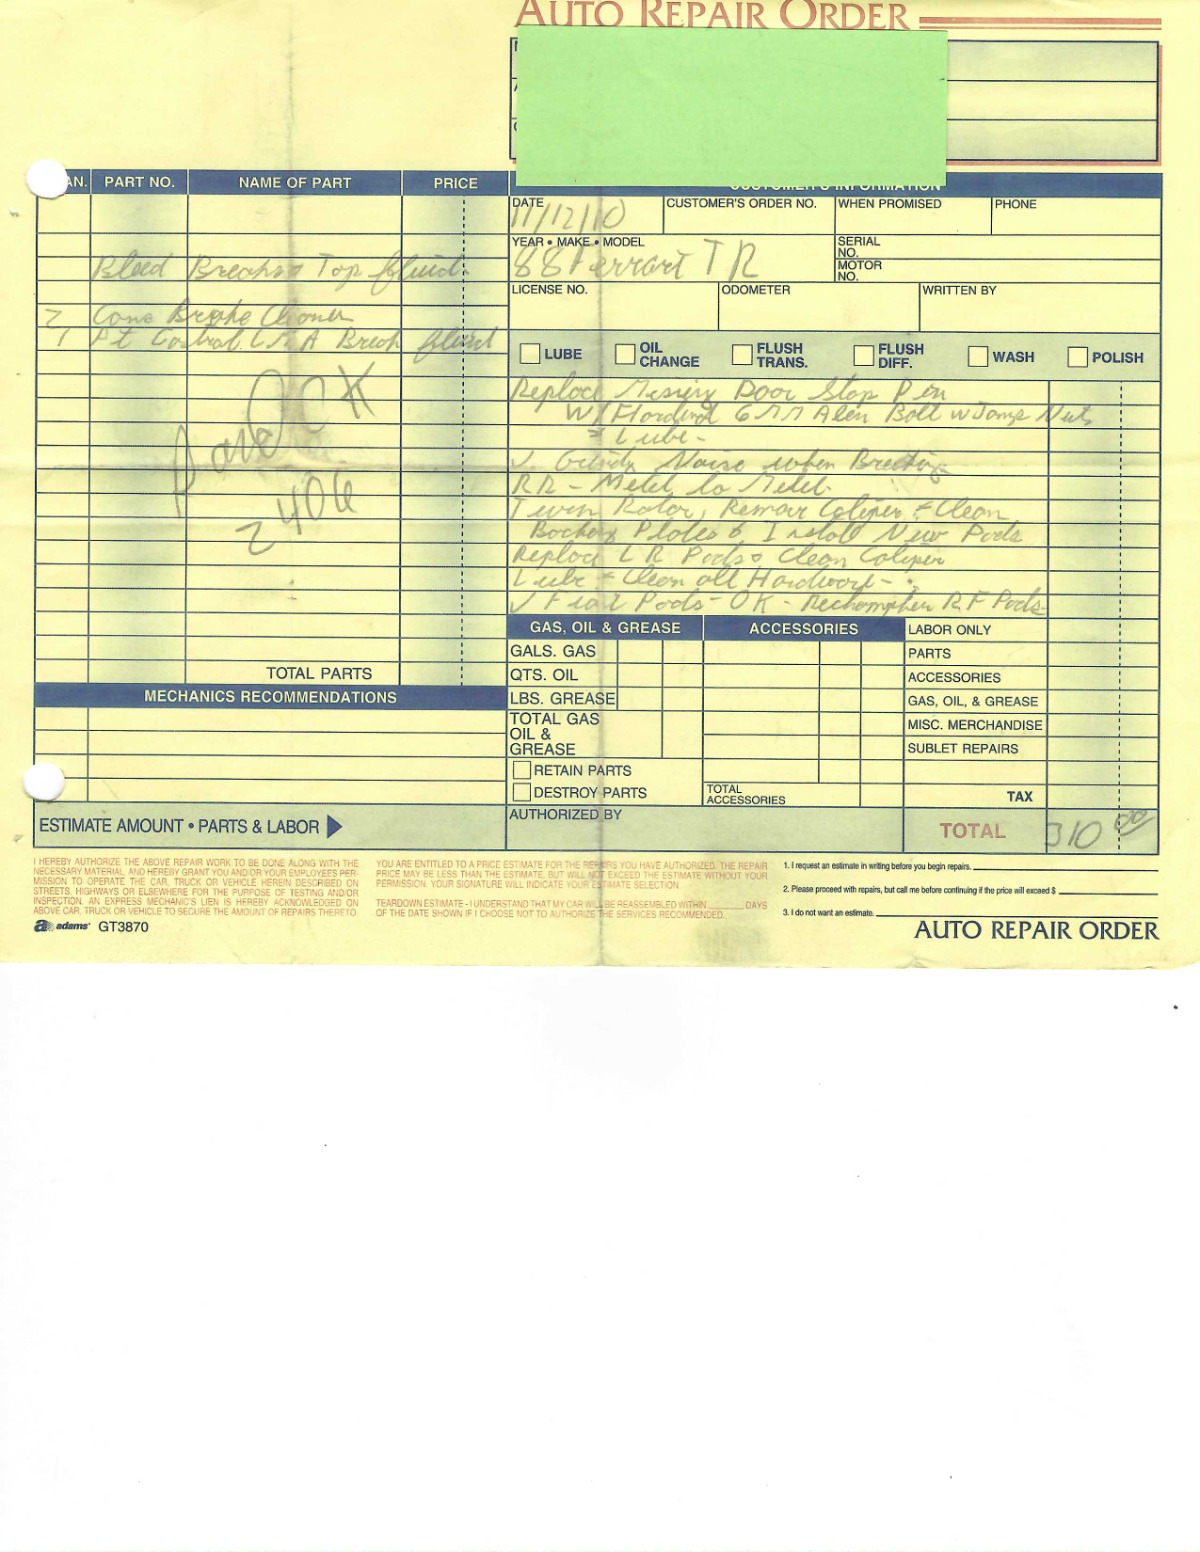 AUTO REPAIR ORDER
AN. PART NO. NAME OF PART PRICE
Bleed Breaks & Top fluid
2 Cans Brake Cleaner
1 Pt Castrol LMA Break fluid
Paid CK
2406
TOTAL PARTS
MECHANICS RECOMMENDATIONS
ESTIMATE AMOUNT • PARTS & LABOR
CUSTOMER'S INFORMATION
DATE 11/12/10 CUSTOMER'S ORDER NO. WHEN PROMISED PHONE
YEAR • MAKE • MODEL 88 Ferrari TR SERIAL NO.
MOTOR NO.
LICENSE NO. ODOMETER WRITTEN BY
LUBE OIL CHANGE FLUSH TRANS. FLUSH DIFF. WASH POLISH
Replace Missing Door Stop Pin
W/ Hardend 6MM Alen Bolt w Jamb Nuts
& Lube -
✓ Grindg Noise when Breaking
RR - Metel to Metel
Turn Rotor, Remove Caliper & Clean
Backing Plates & Install New Pads
Replace LR Pads & Clean Caliper
Lube & Clean all Hardware -
✓ Front Pads - OK - RF Pads
GAS, OIL & GREASE ACCESSORIES LABOR ONLY
GALS. GAS PARTS
QTS. OIL ACCESSORIES
LBS. GREASE GAS, OIL, & GREASE
TOTAL GAS OIL & GREASE MISC. MERCHANDISE
SUBLET REPAIRS
RETAIN PARTS
DESTROY PARTS TOTAL ACCESSORIES TAX
AUTHORIZED BY TOTAL 310 00
I HEREBY AUTHORIZE THE ABOVE REPAIR WORK TO BE DONE ALONG WITH THE
NECESSARY MATERIAL, AND HEREBY GRANT YOU AND/OR YOUR EMPLOYEES PER-
MISSION TO OPERATE THE CAR, TRUCK OR VEHICLE HEREIN DESCRIBED ON
STREETS, HIGHWAYS OR ELSEWHERE FOR THE PURPOSE OF TESTING AND/OR
INSPECTION. AN EXPRESS MECHANIC'S LIEN IS HEREBY ACKNOWLEDGED ON
ABOVE CAR, TRUCK OR VEHICLE TO SECURE THE AMOUNT OF REPAIRS THERETO.
YOU ARE ENTITLED TO A PRICE ESTIMATE FOR THE REPAIRS YOU HAVE AUTHORIZED. THE REPAIR
PRICE MAY BE LESS THAN THE ESTIMATE, BUT WILL NOT EXCEED THE ESTIMATE WITHOUT YOUR
PERMISSION. YOUR SIGNATURE WILL INDICATE YOUR ESTIMATE SELECTION.
TEARDOWN ESTIMATE - I UNDERSTAND THAT MY CAR WILL BE REASSEMBLED WITHIN ______ DAYS
OF THE DATE SHOWN IF I CHOOSE NOT TO AUTHORIZE THE SERVICES RECOMMENDED.
1. I request an estimate in writing before you begin repairs.
2. Please proceed with repairs, but call me before continuing if the price will exceed $
3. I do not want an estimate.
adams GT3870
AUTO REPAIR ORDER